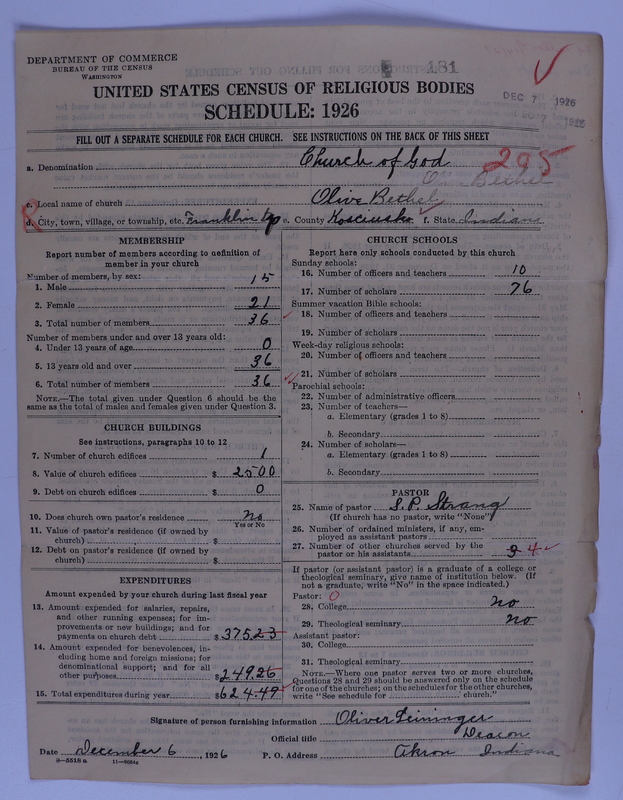 181
DEPARTMENT OF COMMERCE
BUREAU OF THE CENSUS
WASHINGTON
DEC 7 1926
UNITED STATES CENSUS OF RELIGIOUS BODIES
SCHEDULE: 1926
FILL OUT A SEPARATE SCHEDULE FOR EACH CHURCH. SEE INSTRUCTIONS ON THE BACK OF THIS SHEET
a. Denomination Church of God 295
Olive Bethel
c. Local name of church Olive Bethel
d. City, town, village, or township, etc. Franklin tp e. County Kosciusko f. State Indiana
MEMBERSHIP
Report number of members according to definition of
member in your church
Number of members, by sex:
1. Male 15
2. Female 21
3. Total number of members 36
Number of members under and over 13 years old:
4. Under 13 years of age 0
5. 13 years old and over 36
6. Total number of members 36
NOTE.—The total given under Question 6 should be the
same as the total of males and females given under Question 3.
CHURCH BUILDINGS
See instructions, paragraphs 10 to 12
7. Number of church edifices 1
8. Value of church edifices $ 2500
9. Debt on church edifices $ 0
10. Does church own pastor's residence No
Yes or No
11. Value of pastor's residence (if owned by
church) $
12. Debt on pastor's residence (if owned by
church) $
EXPENDITURES
Amount expended by your church during last fiscal year
13. Amount expended for salaries, repairs,
and other running expenses; for im-
provements or new buildings; and for
payments on church debt $ 375.23
14. Amount expended for benevolences, in-
cluding home and foreign missions; for
denominational support; and for all
other purposes $ 249.26
15. Total expenditures during year $ 624.49
CHURCH SCHOOLS
Report here only schools conducted by this church
Sunday schools:
16. Number of officers and teachers 10
17. Number of scholars 76
Summer vacation Bible schools:
18. Number of officers and teachers
19. Number of scholars
Week-day religious schools:
20. Number of officers and teachers
21. Number of scholars
Parochial schools:
22. Number of administrative officers
23. Number of teachers—
a. Elementary (grades 1 to 8)
b. Secondary
24. Number of scholars—
a. Elementary (grades 1 to 8)
b. Secondary
PASTOR
25. Name of pastor S. P. Strang
(If church has no pastor, write "None")
26. Number of ordained ministers, if any, em-
ployed as assistant pastors
27. Number of other churches served by the
pastor or his assistants 4
If pastor (or assistant pastor) is a graduate of a college or
theological seminary, give name of institution below. (If
not a graduate, write "No" in the space indicated.)
Pastor: 0
28. College No
29. Theological seminary No
Assistant pastor:
30. College
31. Theological seminary
NOTE.—Where one pastor serves two or more churches,
Questions 28 and 29 should be answered only on the schedule
for one of the churches; on the schedules for the other churches,
write "See schedule for church."
Signature of person furnishing information Oliver Leininger
Official title Deacon
Date December 6, 1926 P. O. Address Akron Indiana